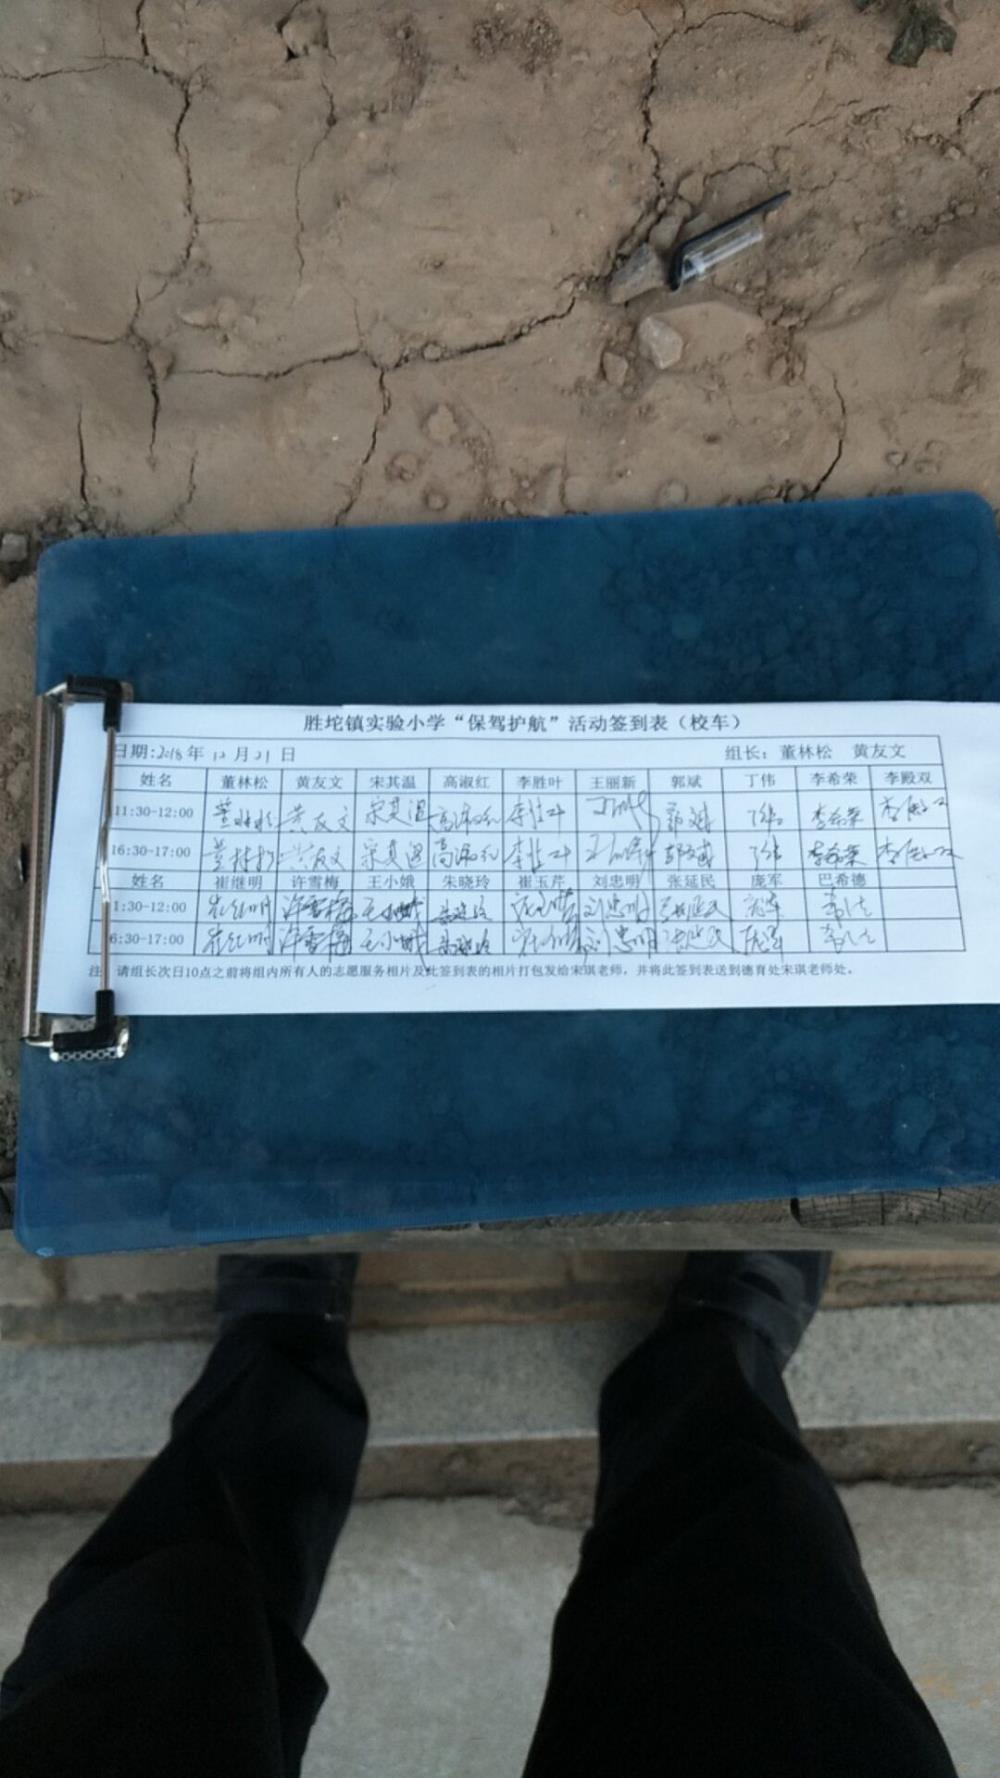 胜坨镇实验小学“保驾护航”活动签到表（校车）
日期:2018年 12月21日 组长：董林松 黄友文
姓名 董林松 黄友文 宋其温 高淑红 李胜叶 王丽新 郭斌 丁伟 李希荣 李殿双
11:30-12:00 董林松 黄友文 宋其温 高淑红 李胜叶 郭斌 丁伟 李希荣
16:30-17:00 董林松 黄友文 宋其温 高淑红 李胜叶 丁伟 李希荣
姓名 崔继明 许雪梅 王小娥 朱晓玲 崔玉芹 刘忠明 张延民 庞军 巴希德
1:30-12:00 崔继明 许雪梅 王小娥 刘忠明 张延民 庞军
6:30-17:00 崔继明 许雪梅 王小娥 刘忠明 张延民 庞军
注：请组长次日10点之前将组内所有人的志愿服务相片及此签到表的相片打包发给宋琪老师，并将此签到表送到德育处宋琪老师处。